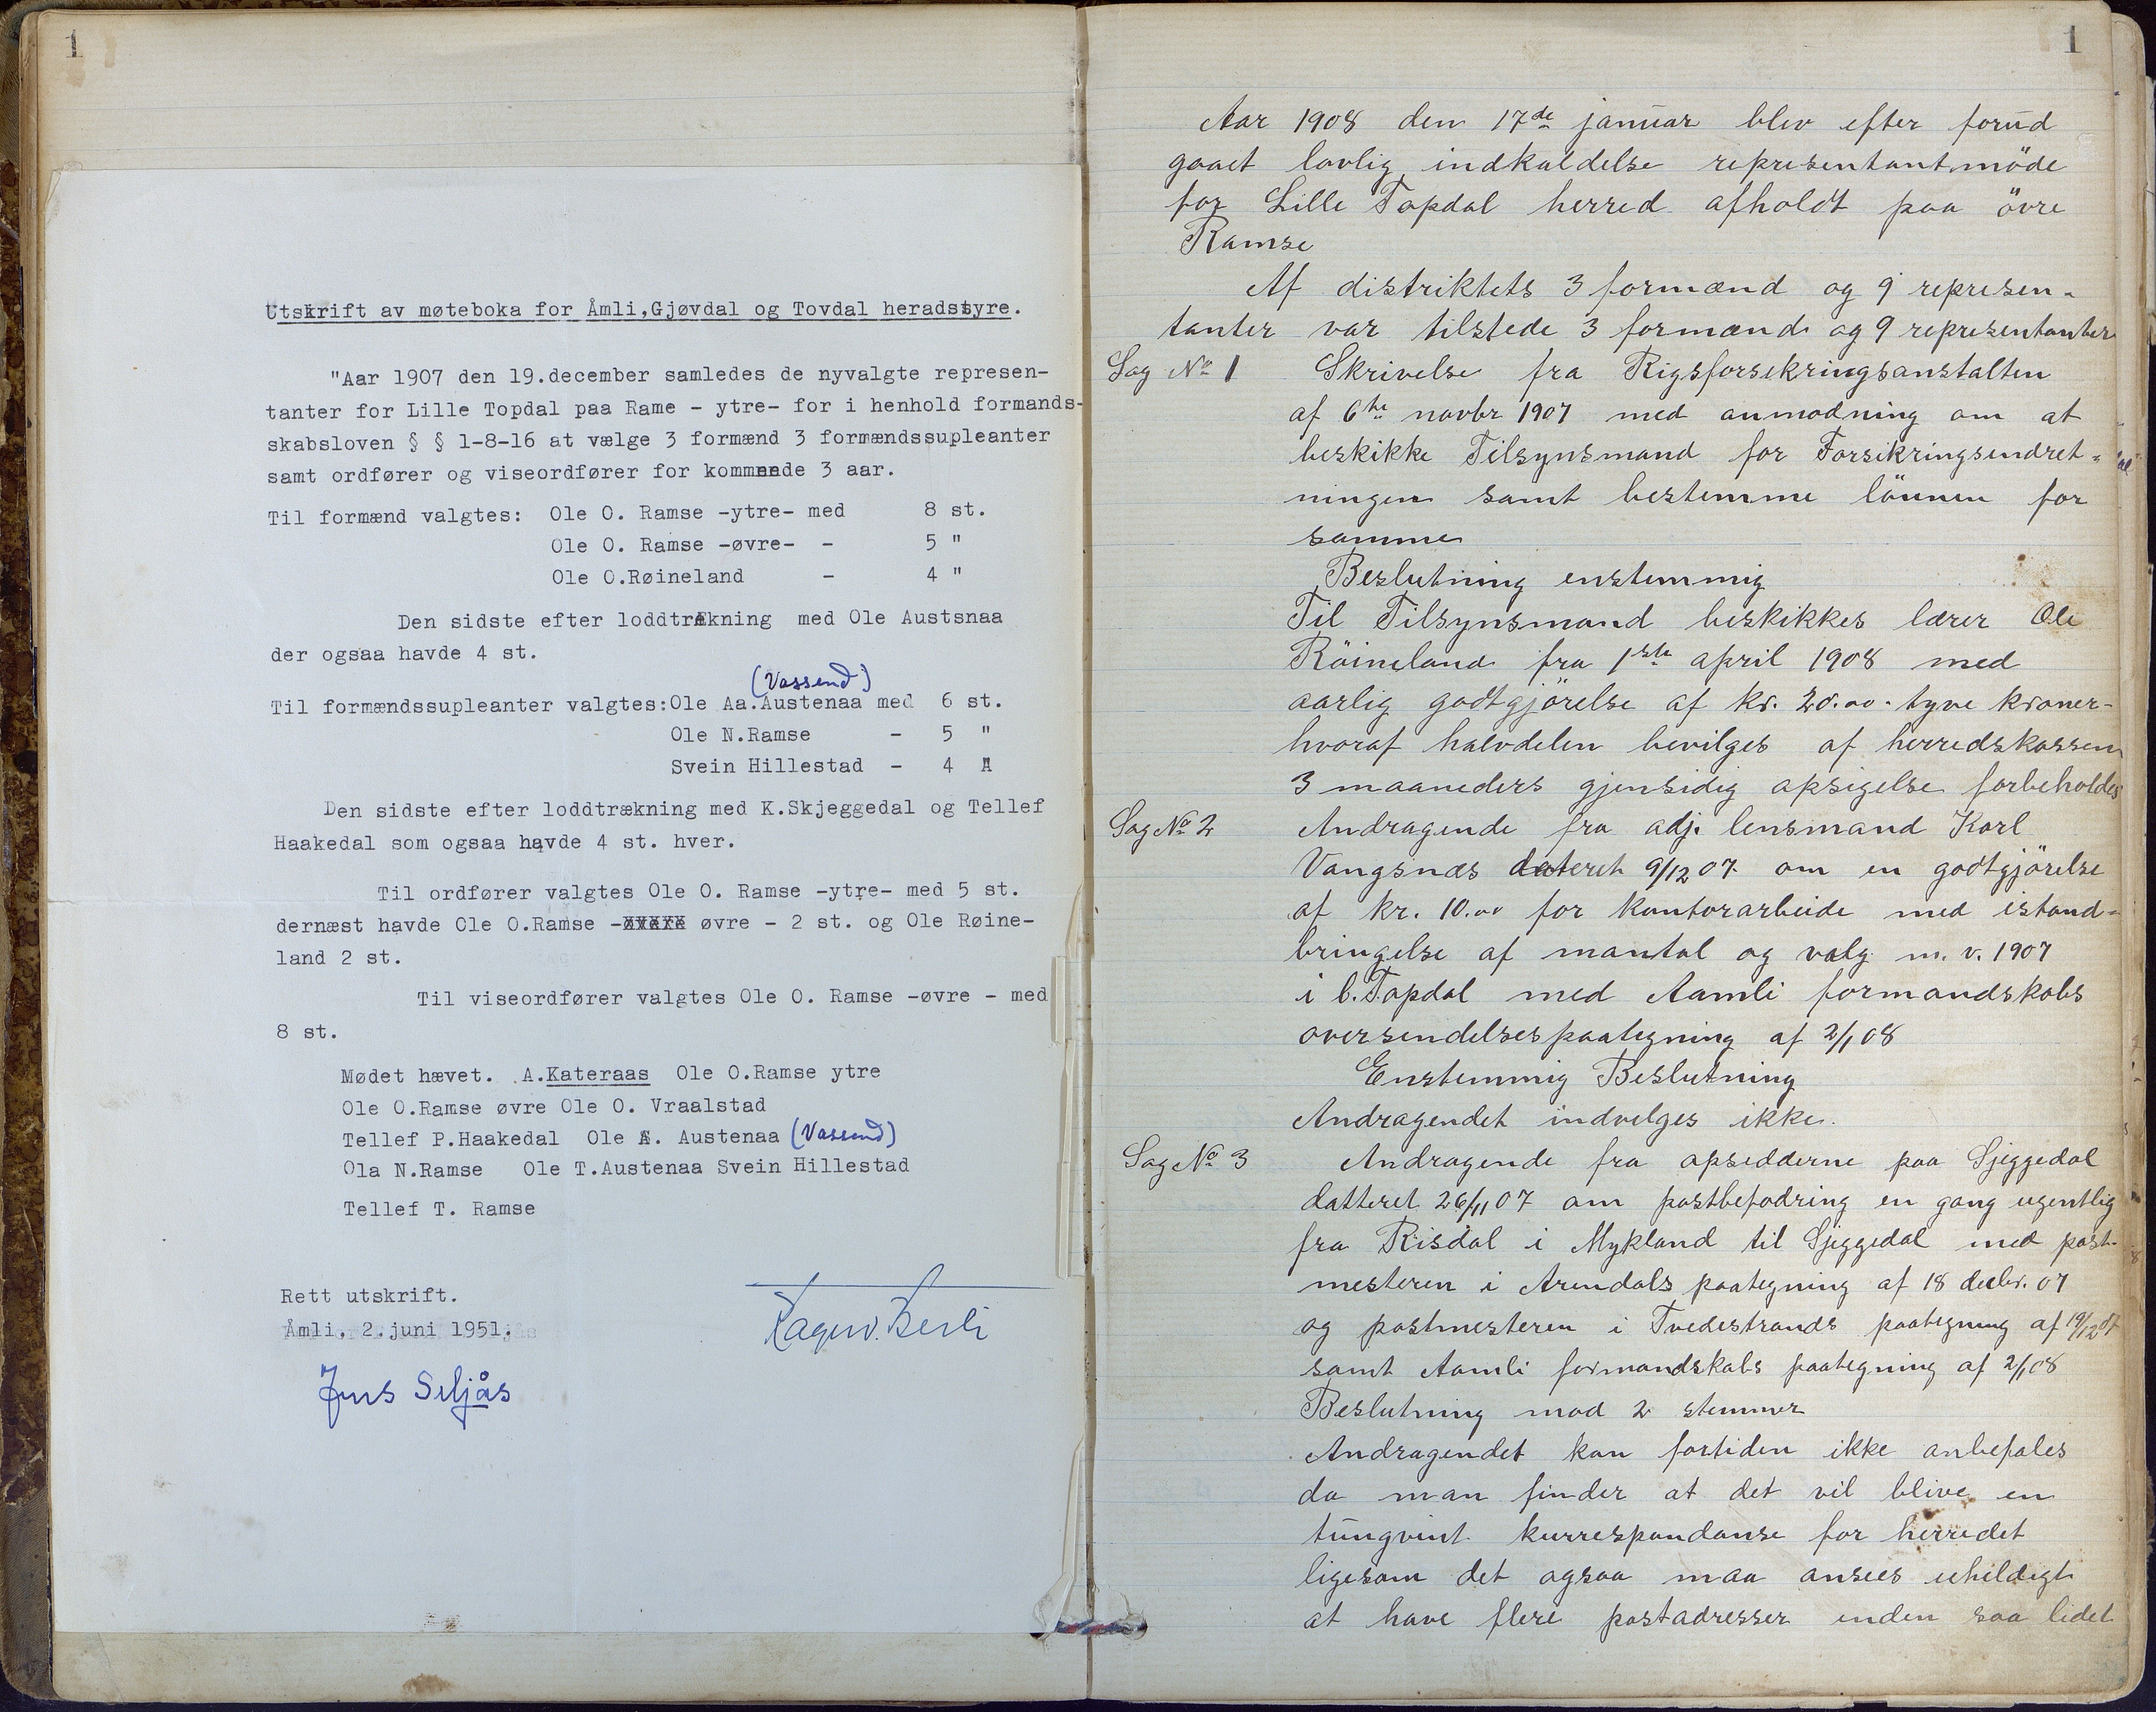 1
Utskrift av møteboka for Åmli,Gjøvdal og Tovdal heradsstyre.
"Aar 1907 den 19.december samledes de nyvalgte represen-
tanter for Lille Topdal paa Rame - ytre- for i henhold formands-
skabsloven § § 1-8-16 at vælge 3 formænd 3 formændssupleanter
samt ordfører og viseordfører for kommende 3 aar.
Til formænd valgtes: Ole O. Ramse -ytre- med 8 st.
Ole O. Ramse -øvre- - 5 "
Ole O.Røineland - 4 "
Den sidste efter loddtrækning med Ole Austsnaa
der ogsaa havde 4 st.
(Vassend)
Til formændssupleanter valgtes:Ole Aa.Austenaa med 6 st.
Ole N.Ramse - 5 "
Svein Hillestad - 4 "
Den sidste efter loddtrækning med K.Skjeggedal og Tellef
Haakedal som ogsaa havde 4 st. hver.
Til ordfører valgtes Ole O. Ramse -ytre- med 5 st.
dernæst havde Ole O.Ramse - øvre - 2 st. og Ole Røine-
land 2 st.
Til viseordfører valgtes Ole O. Ramse -øvre - med
8 st.
Mødet hævet. A.Kateraas Ole O.Ramse ytre
Ole O.Ramse øvre Ole O. Vraalstad
Tellef P.Haakedal Ole A. Austenaa (Vassend)
Ola N.Ramse Ole T.Austenaa Svein Hillestad
Tellef T. Ramse
Rett utskrift.
Åmli, 2.juni 1951.
Jens Seljås
1
Aar 1908 den 17de januar blev efter forud
gaaet lovlig indkaldelse representantmöde
for Lille Topdal herred afholdt paa övre
Ramse
Af distriktets 3 formænd og 9 represen-
tanter var tilstede 3 formænd og 9 representanter
Sag No 1 Skrivelse fra Rigsforsikringsanstalten
af 6te novbr 1907 med anmodning om at
beskikke Tilsynsmand for Forsikringsindret-
ningen samt bestemme lönnen for
samme
Beslutning enstemmig
Til Tilsynsmand beskikkes lærer Ole
Röineland fra 1ste april 1908 med
aarlig godtgjörelse af kr. 20.00 - tyve kroner-
hvoraf halvdelen bevilges af herredskassen
3 maaneders gjensidig opsigelse forbeholdes
Sag No 2 Andragende fra adj. lensmand Karl
Vangsnæs dateret 9/12 07 om en godtgjörelse
af kr. 10.00 for kontorarbeide med istand-
bringelse af mantal og valg m. v. 1907
i l. Topdal med Aamli formandskabs
oversendelsespaategning af 2/1 08
Enstemmig Beslutning
Andragendet indvelges ikke.
Sag No 3 Andragende fra opsidderne paa Sjeggedal
datteret 26/11 07 om postbefodring en gang ugentlig
fra Risdal i Mykland til Sjeggedal med post-
mesteren i Arendals paategning af 18 decbr. 07
og postmesteren i Tvedestrands paategning af 19/12 07
samt Aamli formandskabs paategning af 2/1 08
Beslutning mod 2 stemmer
Andragendet kan fortiden ikke anbefales
da man finder at det vil blive en
tungvint kurrespondanse for herredet
ligesom det ogsaa maa ansees uheldigt
at have flere postadresser inden saa lidet